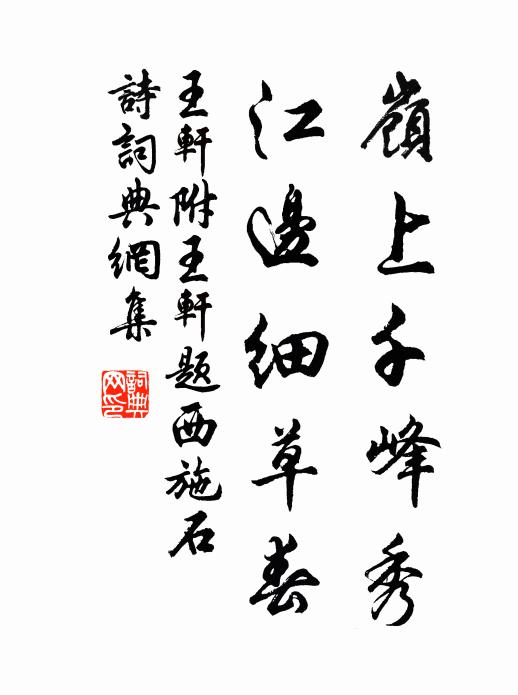 嶺上千峰秀
江邊細草春
王軒附王軒題西施石
詩詞典網集
詞典网印